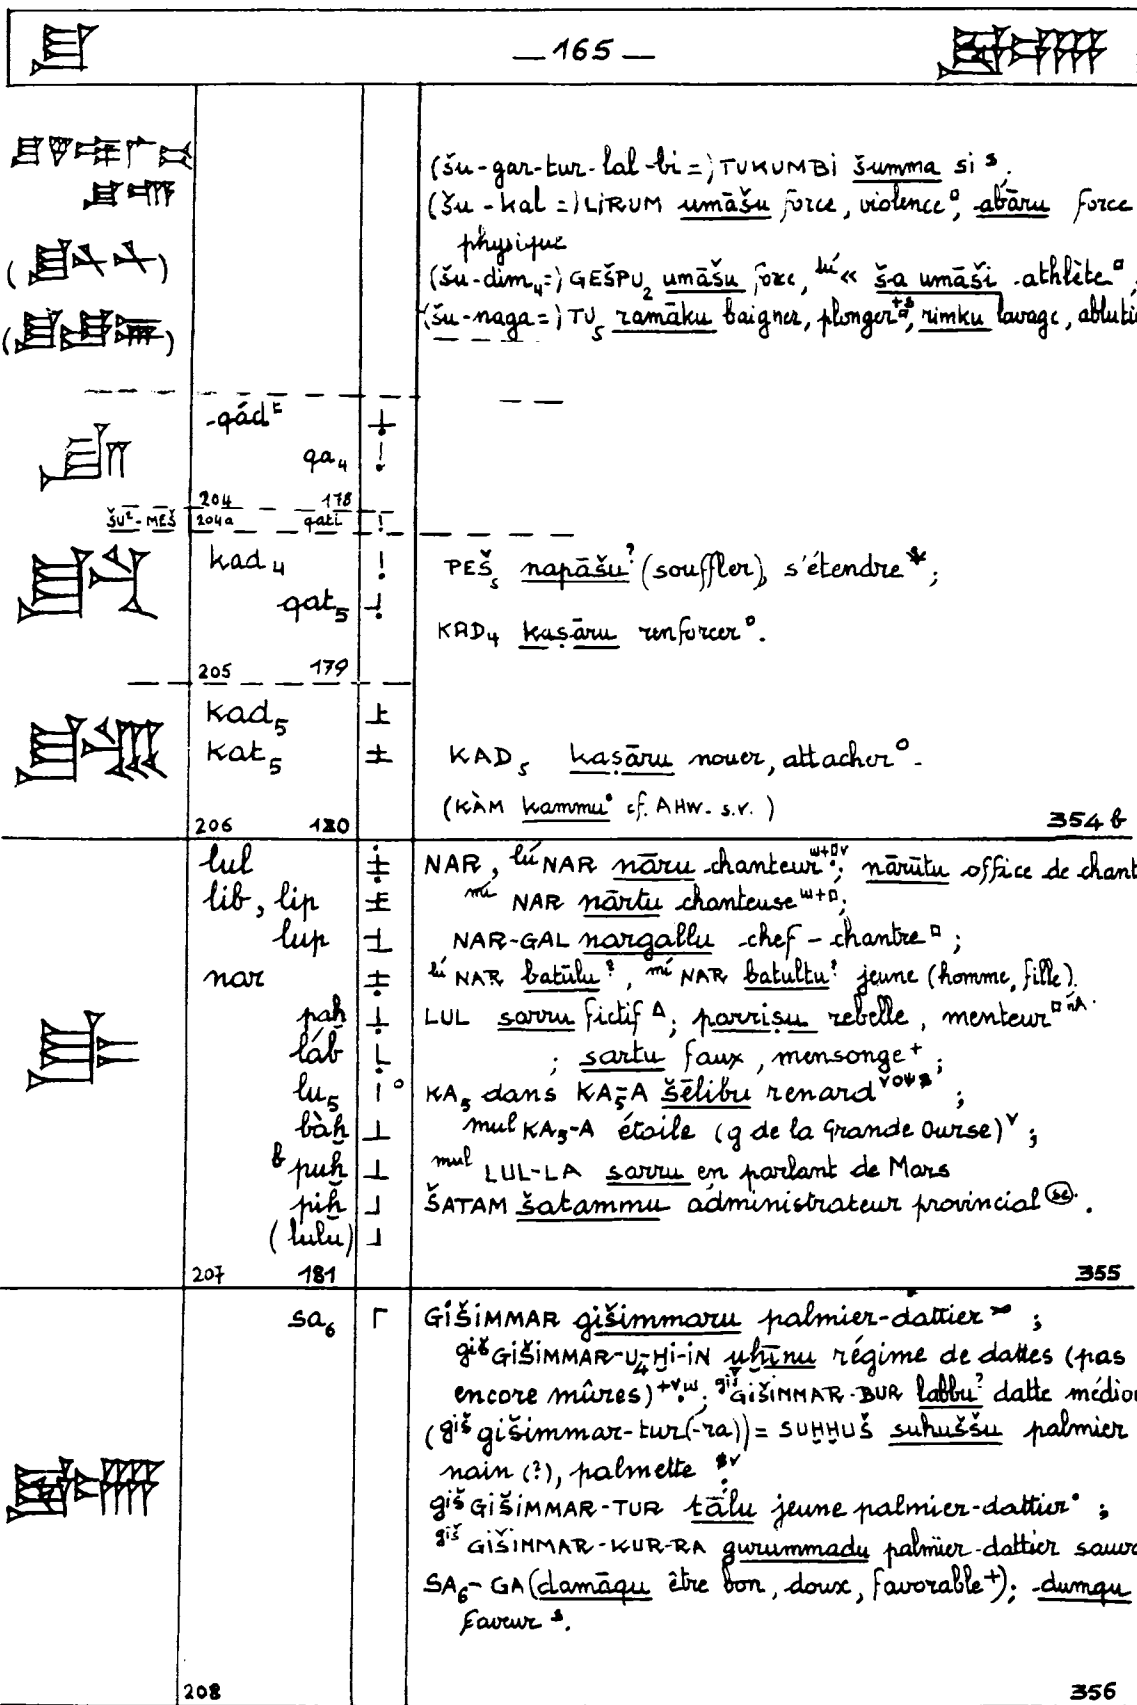 — 165 —
(šu-gar-tur-lal-bi =) TUKUMBI šumma si ;
(šu-kal =) LIRUM umāšu force, violence, abāru force
physique
(šu-dim₄ =) GEŠPU₂ umāšu force, lú « ša umāši athlète ;
(šu-naga =) TU₅ ramāku baigner, plonger, rimku lavage,
-qád
qa₄
204 178
ŠU²-MEŠ 204a qati
kad₄
qat₅
PEŠ₅ napāšu? (souffler), s'étendre ;
KAD₄ kaṣāru renforcer.
205 179
kad₅
kat₅
KAD₅ kaṣāru nouer, attacher.
(KÀM kammu cf. AHw. s.v.)
206 180 354 b
lul NAR, lú NAR nāru chanteur ; nārūtu office de
lib, lip mí NAR nārtu chanteuse ;
lup NAR-GAL nargallu chef-chantre ;
nar lú NAR batūlu?, mí NAR batultu? jeune (homme, fille).
paḫ LUL sarru fictif ; parriṣu rebelle, menteur
láb ; sartu faux, mensonge + ;
lu₅ KA₅ dans KA₅-A šēlibu renard ;
bàḫ mul KA₅-A étoile (g de la Grande Ourse) ;
puḫ mul LUL-LA sarru en parlant de Mars
piḫ ŠATAM šatammu administrateur provincial.
(lulu)
207 181 355
sa₆ GIŠIMMAR gišimmaru palmier-dattier ;
giš GIŠIMMAR-U₄-ḪI-IN uḫīnu régime de dattes (pas
encore mûres) ; giš GIŠIMMAR-BUR labbu? datte
(giš gišimmar-tur(-ra)) = SUḪḪUŠ suḫuššu palmier
nain (?), palmette
giš GIŠIMMAR-TUR tālu jeune palmier-dattier ;
giš GIŠIMMAR-KUR-RA gurummadu palmier-dattier
SA₆-GA (damāqu être bon, doux, favorable +); dumqu
faveur.
208 356